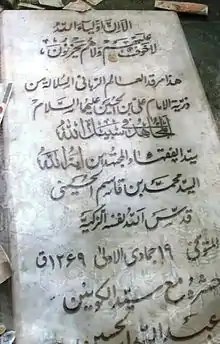 الا ان اولیاء الله
لا خوف علیهم ولا هم یحزنون
هذا مرقد العالم الربانی السلالة من
ذریة الامام علی بن الحسین علیهما السلام
المجاهد سبیل الله
سید الفقهاء المجتهدین آیة الله
السید محمد بن قاسم الحسینی
قدس الله نفسه الزکیة
المتوفی ۱۹ جمادی الاولی ۱۲۶۹ ق
حشره مع سید الکونین
عبد الله الحسین